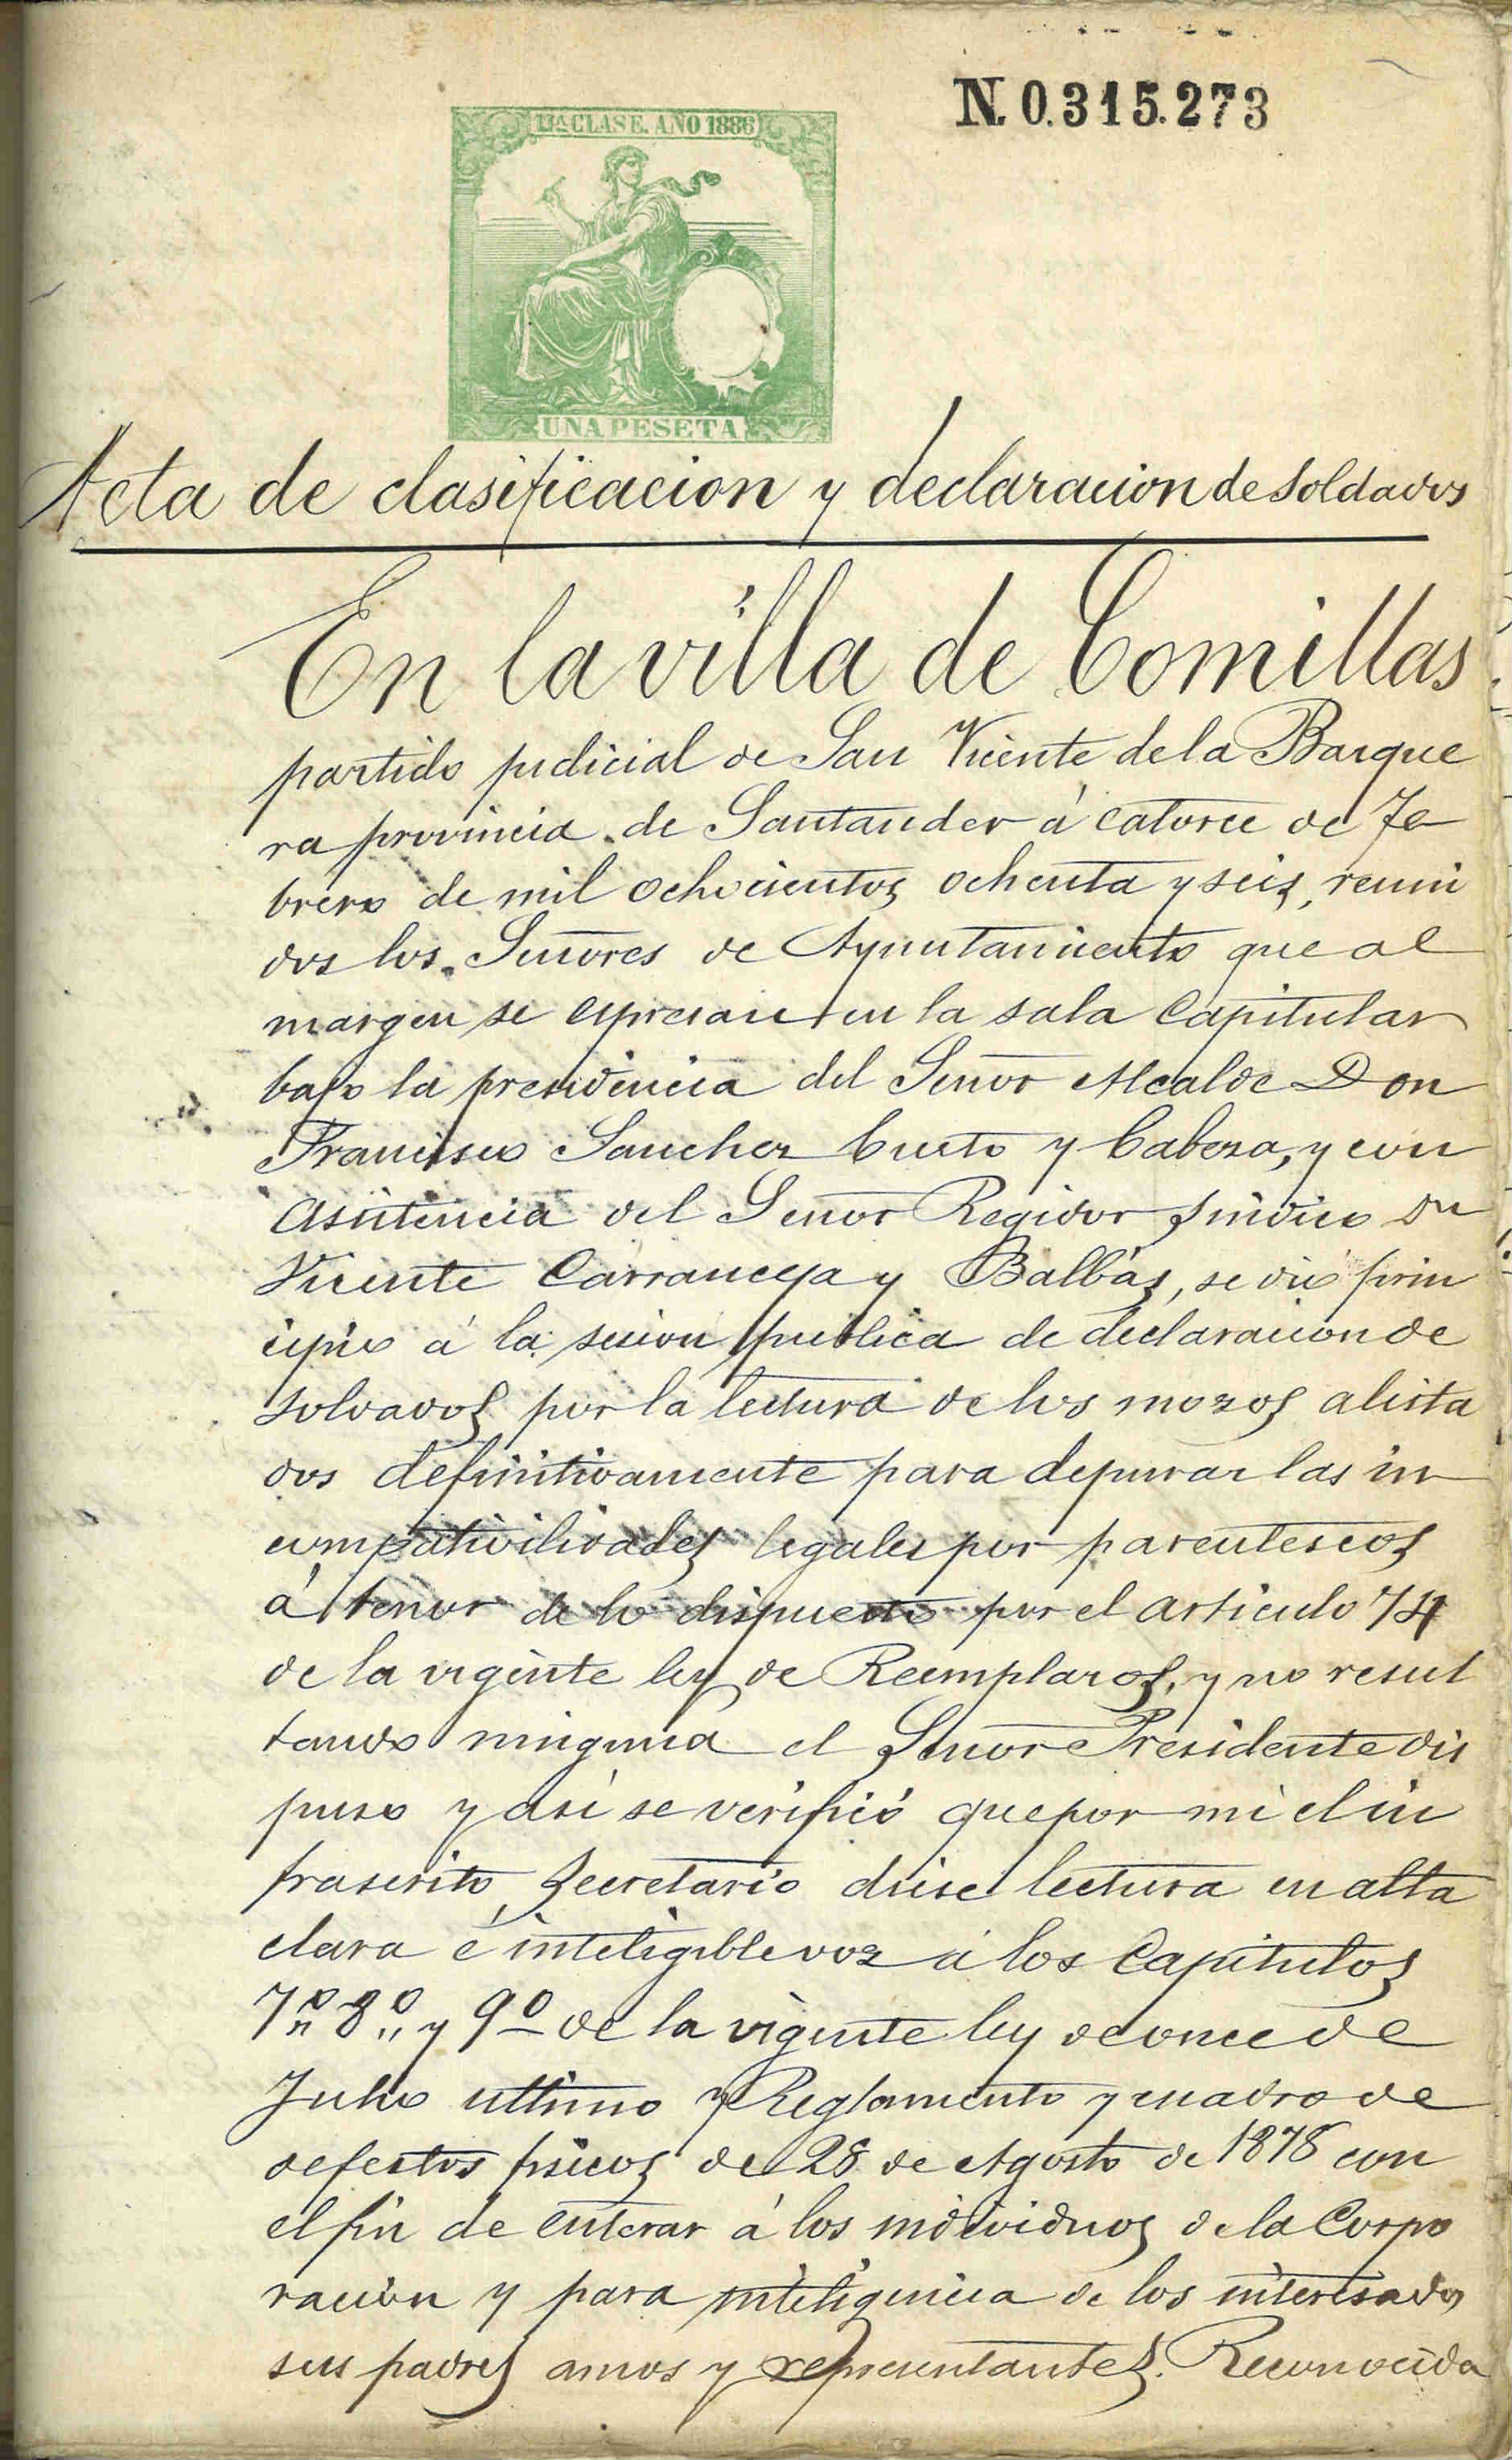 N. 0.315.273
13ª CLASE. AÑO 1886
UNA PESETA
Acta de clasificacion y declaracion de Soldados
En la villa de Comillas
partido judicial de San Vicente de la Barque
ra provincia de Santander á catorce de Fe
brero de mil ochocientos ochenta y seis, reuni
dos los Señores de Ayuntamiento que al
margen se espresan en la sala Capitular
bajo la presidencia del Señor Alcalde Don
Francisco Sanchez Cueto y Cabeza, y con
asistencia del Señor Regidor Sindico Dn
Vicente Carranceja y Balbás, se dió prin
cipio á la sesion publica de declaracion de
soldados por la lectura de los mozos alista
dos definitivamente para depurar las in
compativilidades legales por parentescos
á tenor de lo dispuesto por el articulo 74
de la vigente ley de Reemplazos, y no resul
tando ninguna el Señor Presidente dis
puso y asi se verificó que por mi el in
frascrito Secretario diese lectura en alta
clara é inteligible voz á los Capitulos
7º 8º y 9º de la vigente ley de once de
Julio ultimo y Reglamento y cuadro de
defectos fisicos de 28 de Agosto de 1878 con
el fin de enterar á los individuos de la Corpo
racion y para inteligencia de los interesados
sus padres amos y representantes. Reconocida